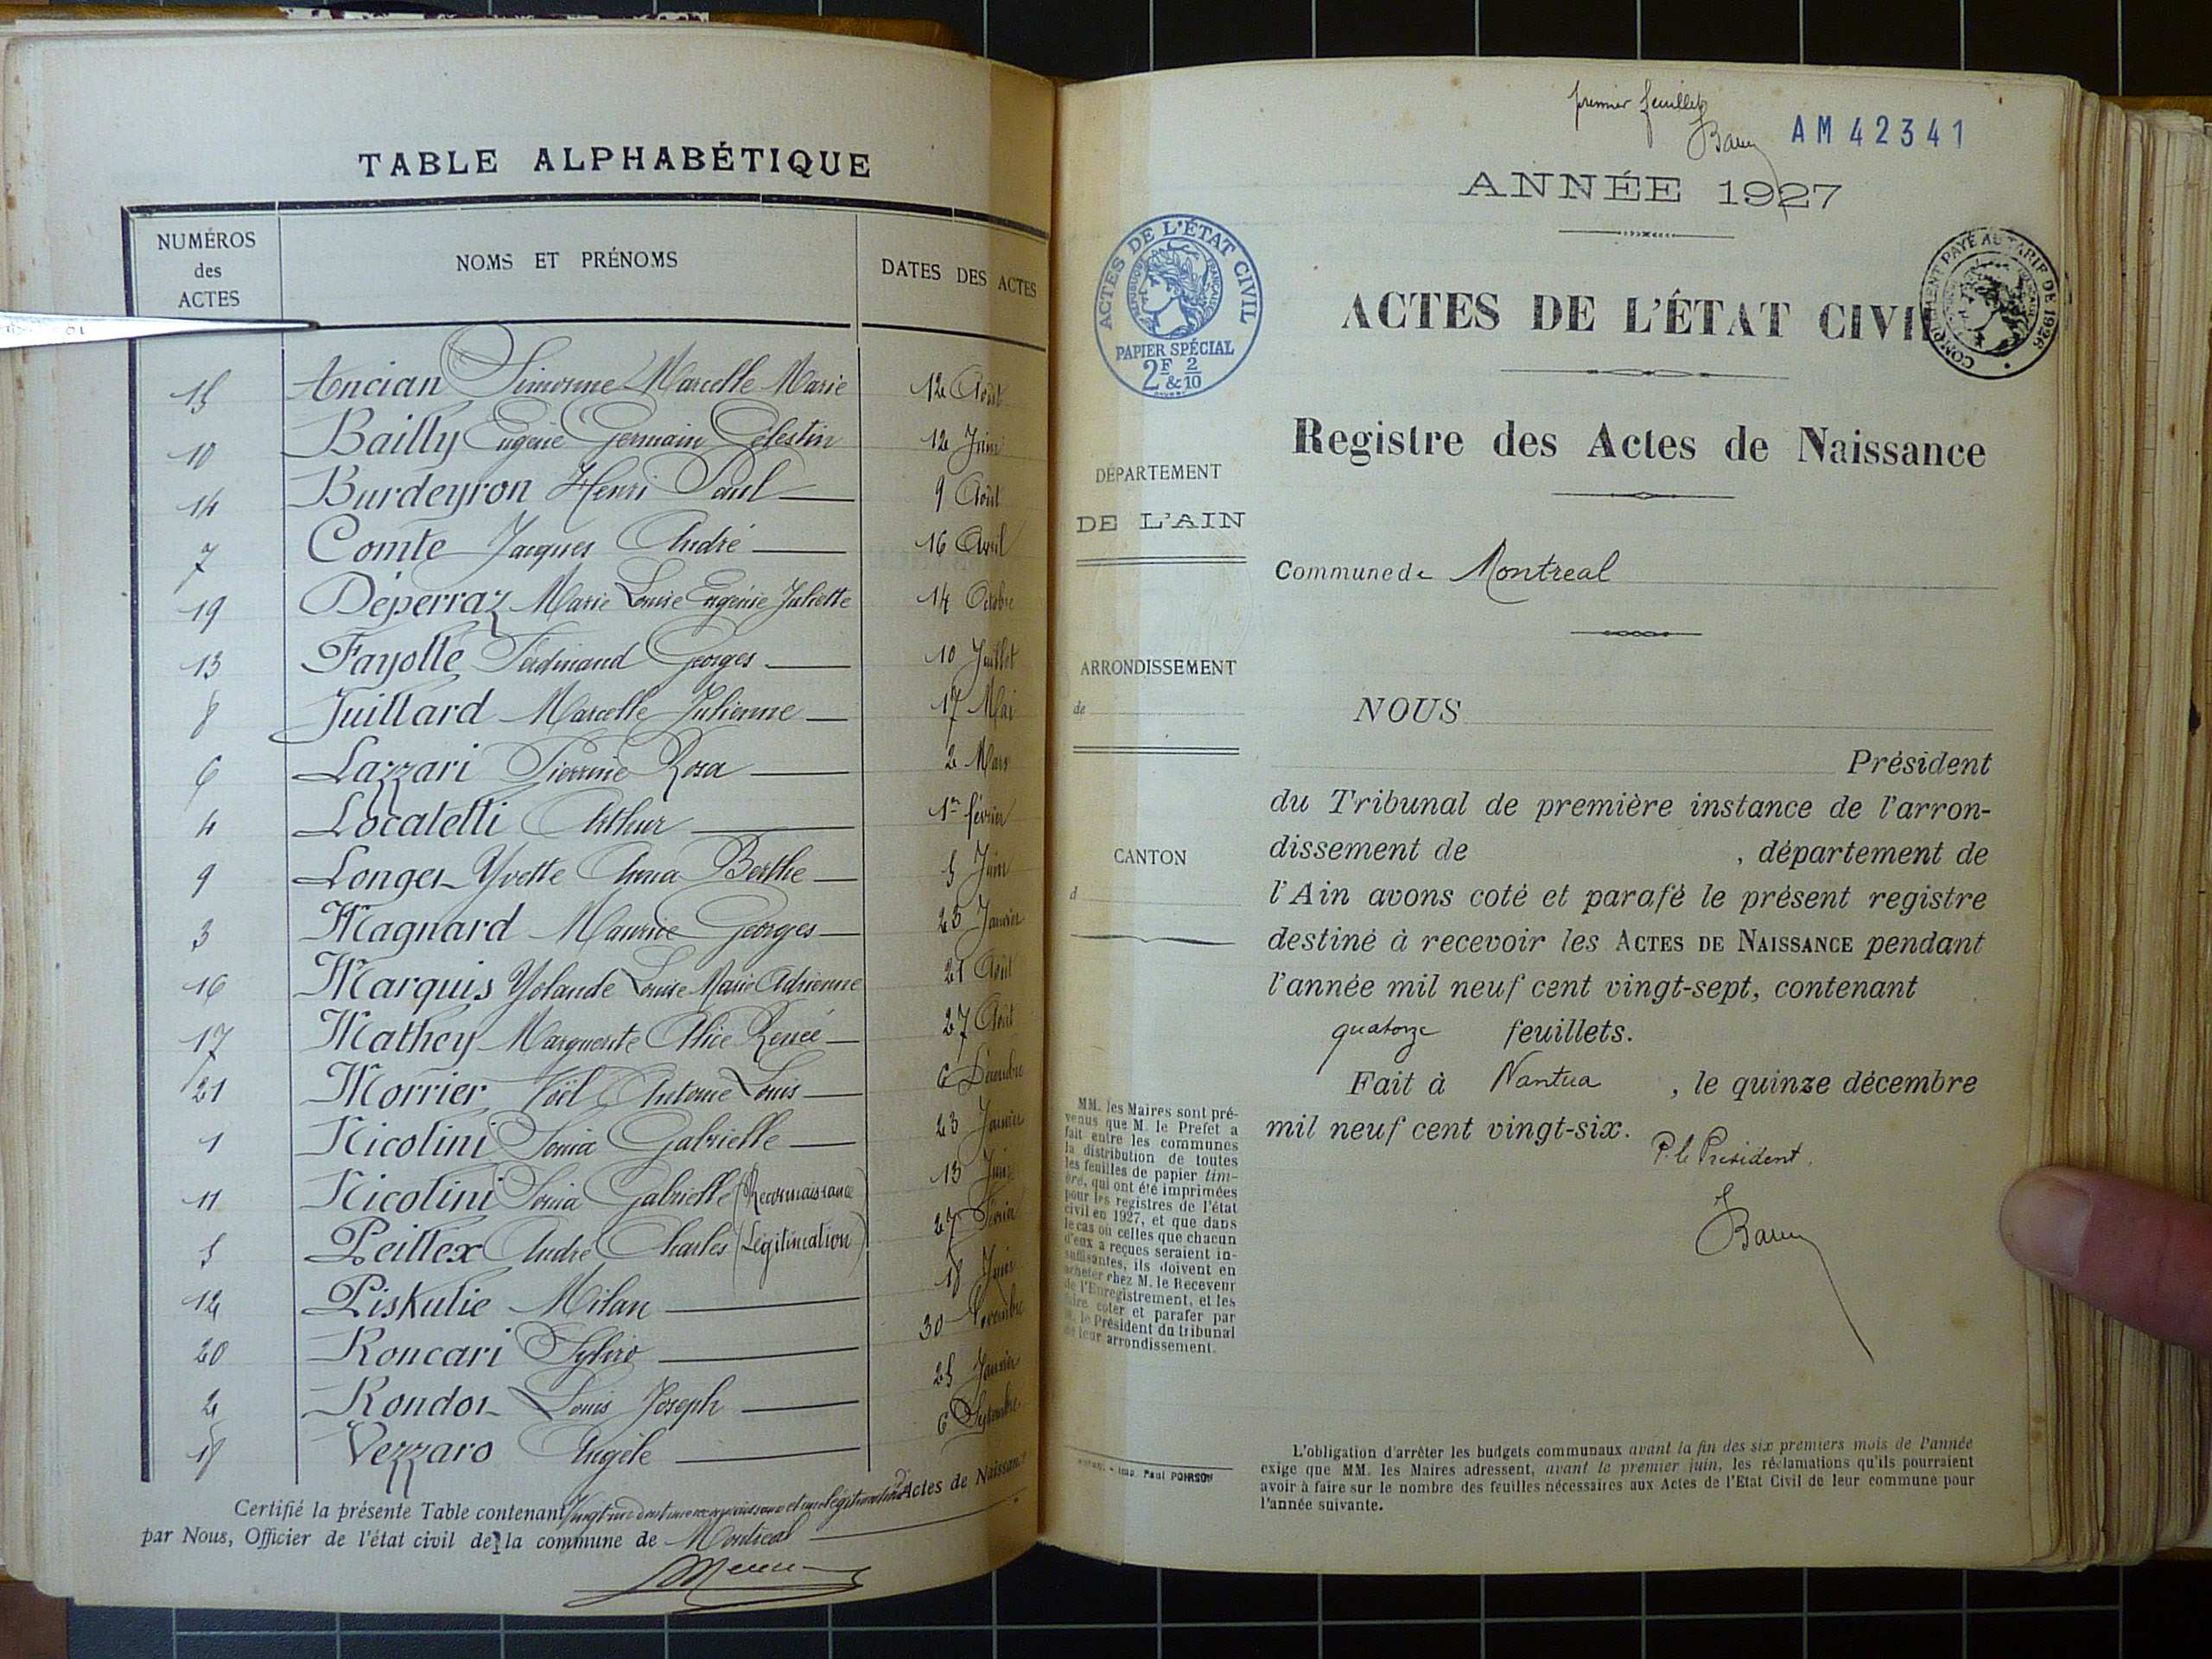 TABLE ALPHABÉTIQUE
NUMÉROS des ACTES
NOMS ET PRÉNOMS
DATES DES ACTES
15 Ancian Simonne Marcelle Marie 12 Août
10 Bailly Eugène Germain Célestin 12 Juin
14 Burdeyron Henri Paul 9 Août
7 Comte Jacques André 16 Avril
19 Déperraz Marie Louise Eugénie Juliette 14 Octobre
13 Fayolle Ferdinand Georges 10 Juillet
8 Juillard Marcelle Julienne 17 Mai
6 Lazzari Pierrine Rosa 2 Mars
4 Locatelli Arthur 1er février
9 Longer Yvette Anna Berthe 5 Juin
3 Magnard Maurice Georges 25 Janvier
16 Marquis Yolande Louise Marie Adrienne 21 Août
17 Mathey Marguerite Alice Renée 27 Août
21 Morrier Noël Antoine Louis 6 Décembre
1 Nicolini Sonia Gabrielle 23 Janvier
11 Nicolini Sonia Gabrielle (Reconnaissance) 13 Juin
5 Peillex André Charles (Légitimation) 27 Février
12 Piskulic Milan 18 Juin
20 Roncari Sylvio 30 Novembre
2 Rondor Louis Joseph 25 Janvier
18 Vezzaro Angèle 6 Septembre
Certifié la présente Table contenant Vingt un dont une reconnaissance et une légitimation d'Actes de Naissance
par Nous, Officier de l'état civil de la commune de Montréal
premier feuillet
AM 42341
ANNÉE 1927
ACTES DE L'ÉTAT CIVIL
RÉPUBLIQUE FRANÇAISE
PAPIER SPÉCIAL
2F & 2/10
COMPLÉMENT PAYÉ AU TARIF DE 1926
ACTES DE L'ÉTAT CIVIL
Registre des Actes de Naissance
DÉPARTEMENT
DE L'AIN
Commune de Montreal
ARRONDISSEMENT
de
NOUS
Président
du Tribunal de première instance de l'arron-
dissement de , département de
CANTON
d
l'Ain avons coté et parafé le présent registre
destiné à recevoir les ACTES DE NAISSANCE pendant
l'année mil neuf cent vingt-sept, contenant
quatorze feuillets.
Fait à Nantua , le quinze décembre
mil neuf cent vingt-six.
P. le Président.
MM. les Maires sont pré-
venus que M. le Préfet a
fait entre les communes
la distribution de toutes
les feuilles de papier tim-
bré, qui ont été imprimées
pour les registres de l'état
civil en 1927, et que dans
le cas où celles que chacun
d'eux a reçues seraient in-
suffisantes, ils doivent en
acheter chez M. le Receveur
de l'Enregistrement, et les
faire coter et parafer par
M. le Président du tribunal
de leur arrondissement.
imp. Paul POIRSON
L'obligation d'arrêter les budgets communaux avant la fin des six premiers mois de l'année
exige que MM. les Maires adressent, avant le premier juin, les réclamations qu'ils pourraient
avoir à faire sur le nombre des feuilles nécessaires aux Actes de l'Etat Civil de leur commune pour
l'année suivante.